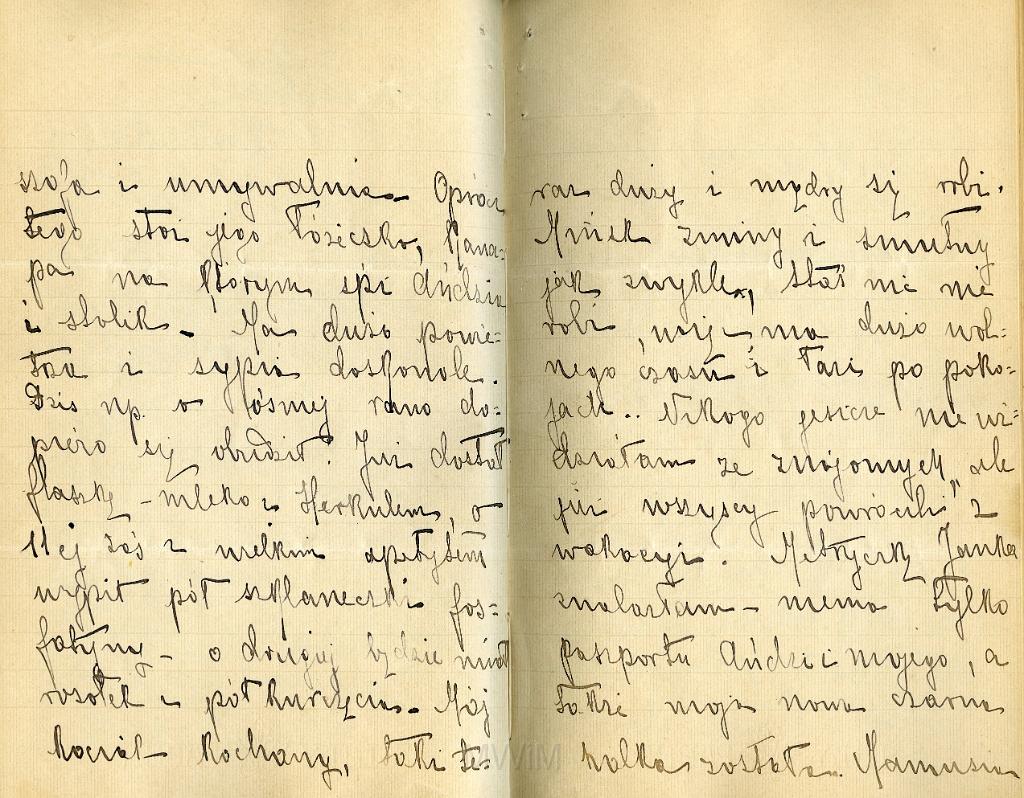 szafa i umywalnia. Oprócz
tego stoi jego łóżeczko, kana-
pa na którym śpi Andzia
i stolik. Ma dużo powie-
trza i sypia doskonale.
Dziś np. o ósmej rano do-
piero się obudził. Już dostał
flaszkę mleka z Herkulem, o
11ej zaś z wielkim apetytem
wypił pół szklaneczki fos-
fatyny – o drugiej będzie miał
rosołek z pół kurczęcia. Mój
kociak kochany, taki te-
raz duży i mądry się robi.
zimny i smutny
jak zwykle, stał nic nie
robi, więc ma dużo wol-
nego czasu i łazi po poko-
jach.. Nikogo jeszcze nie wi-
działam ze znajomych, ale
już wszyscy powrócili z
wakacyi. Metryczkę Janka
znalazłam – niema tylko
paszportu Andzi i mojego, a
także moja nowa czarna
halka została. Mamusia
MWiM